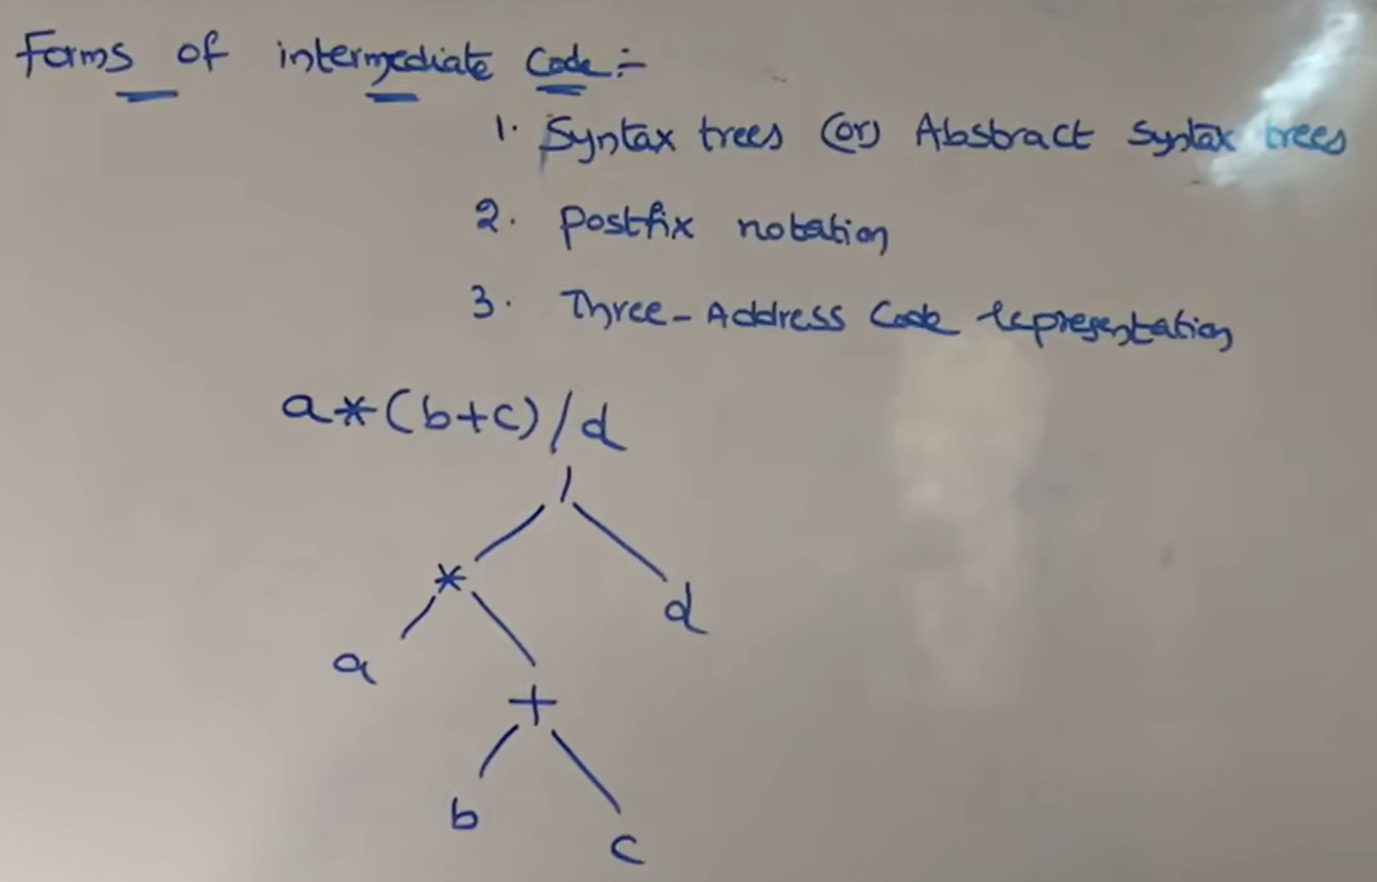 Forms of intermediate Code:-
1. Syntax trees (or) Abstract Syntax trees
2. Postfix notation
3. Three-Address Code representation
a*(b+c)/d
/
* d
a
+
b
c